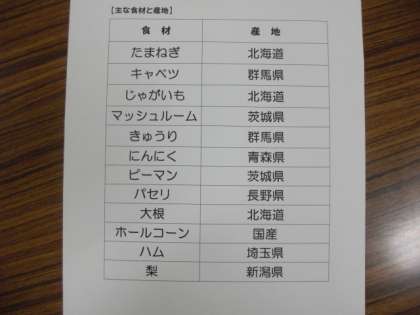 【主な食材と産地】
食材 産地
たまねぎ 北海道
キャベツ 群馬県
じゃがいも 北海道
マッシュルーム 茨城県
きゅうり 群馬県
にんにく 青森県
ピーマン 茨城県
パセリ 長野県
大根 北海道
ホールコーン 国産
ハム 埼玉県
梨 新潟県